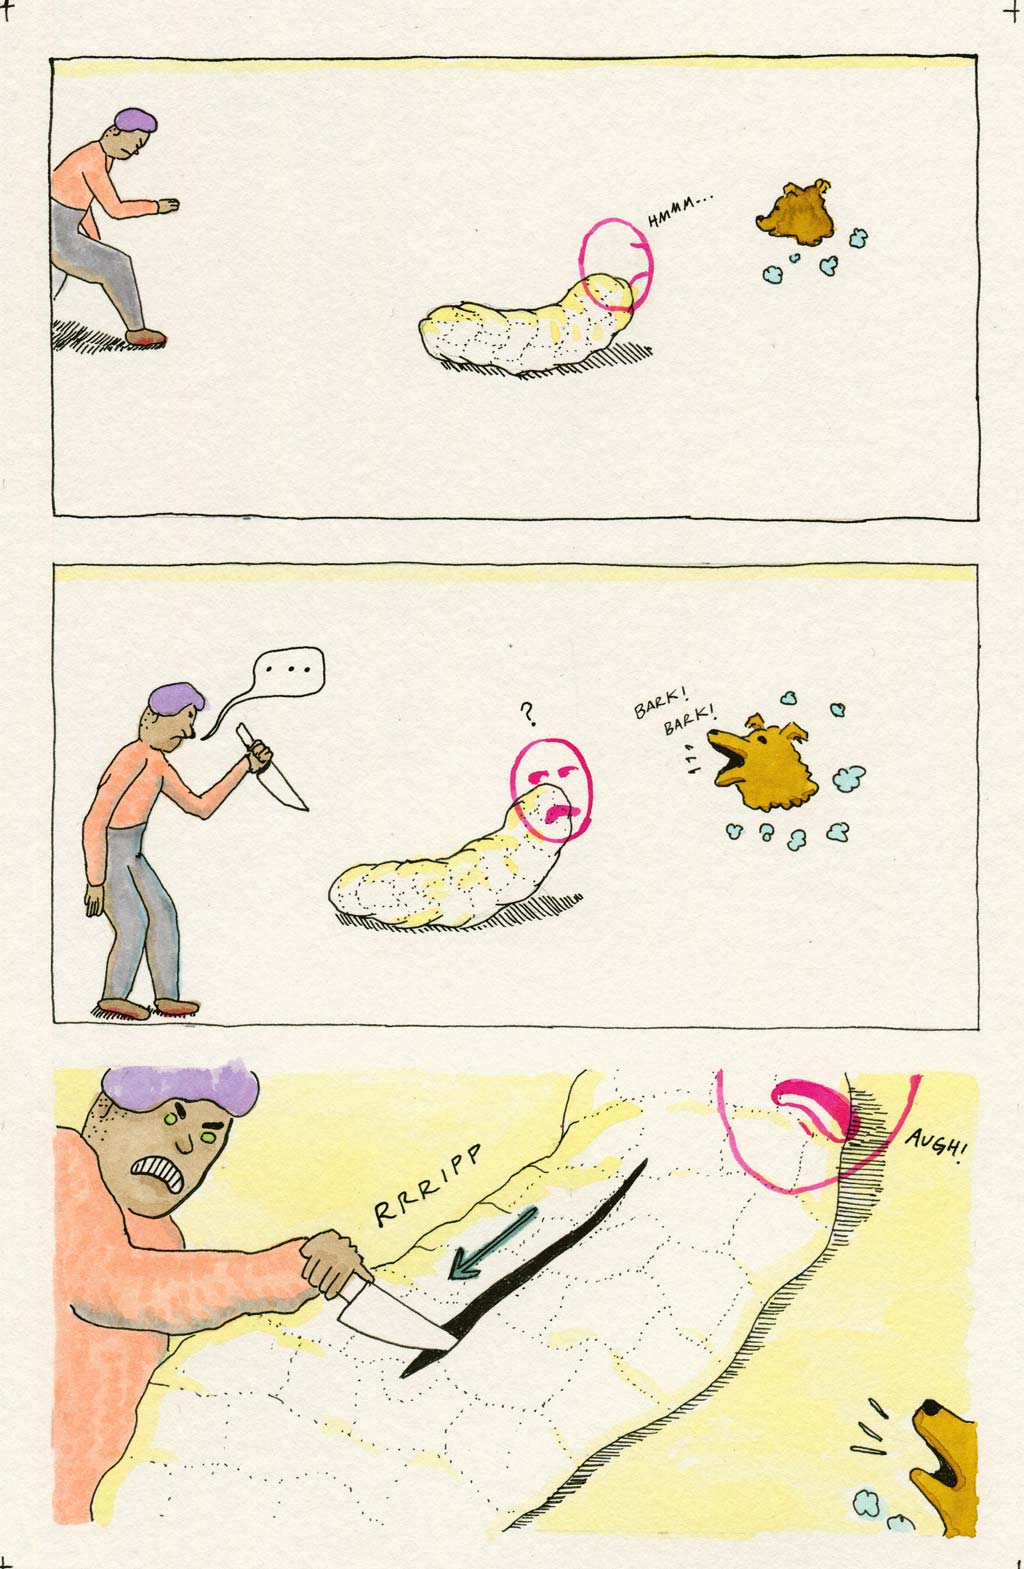 HMMM...
...
?
BARK!
BARK!
RRRIPP
AUGH!